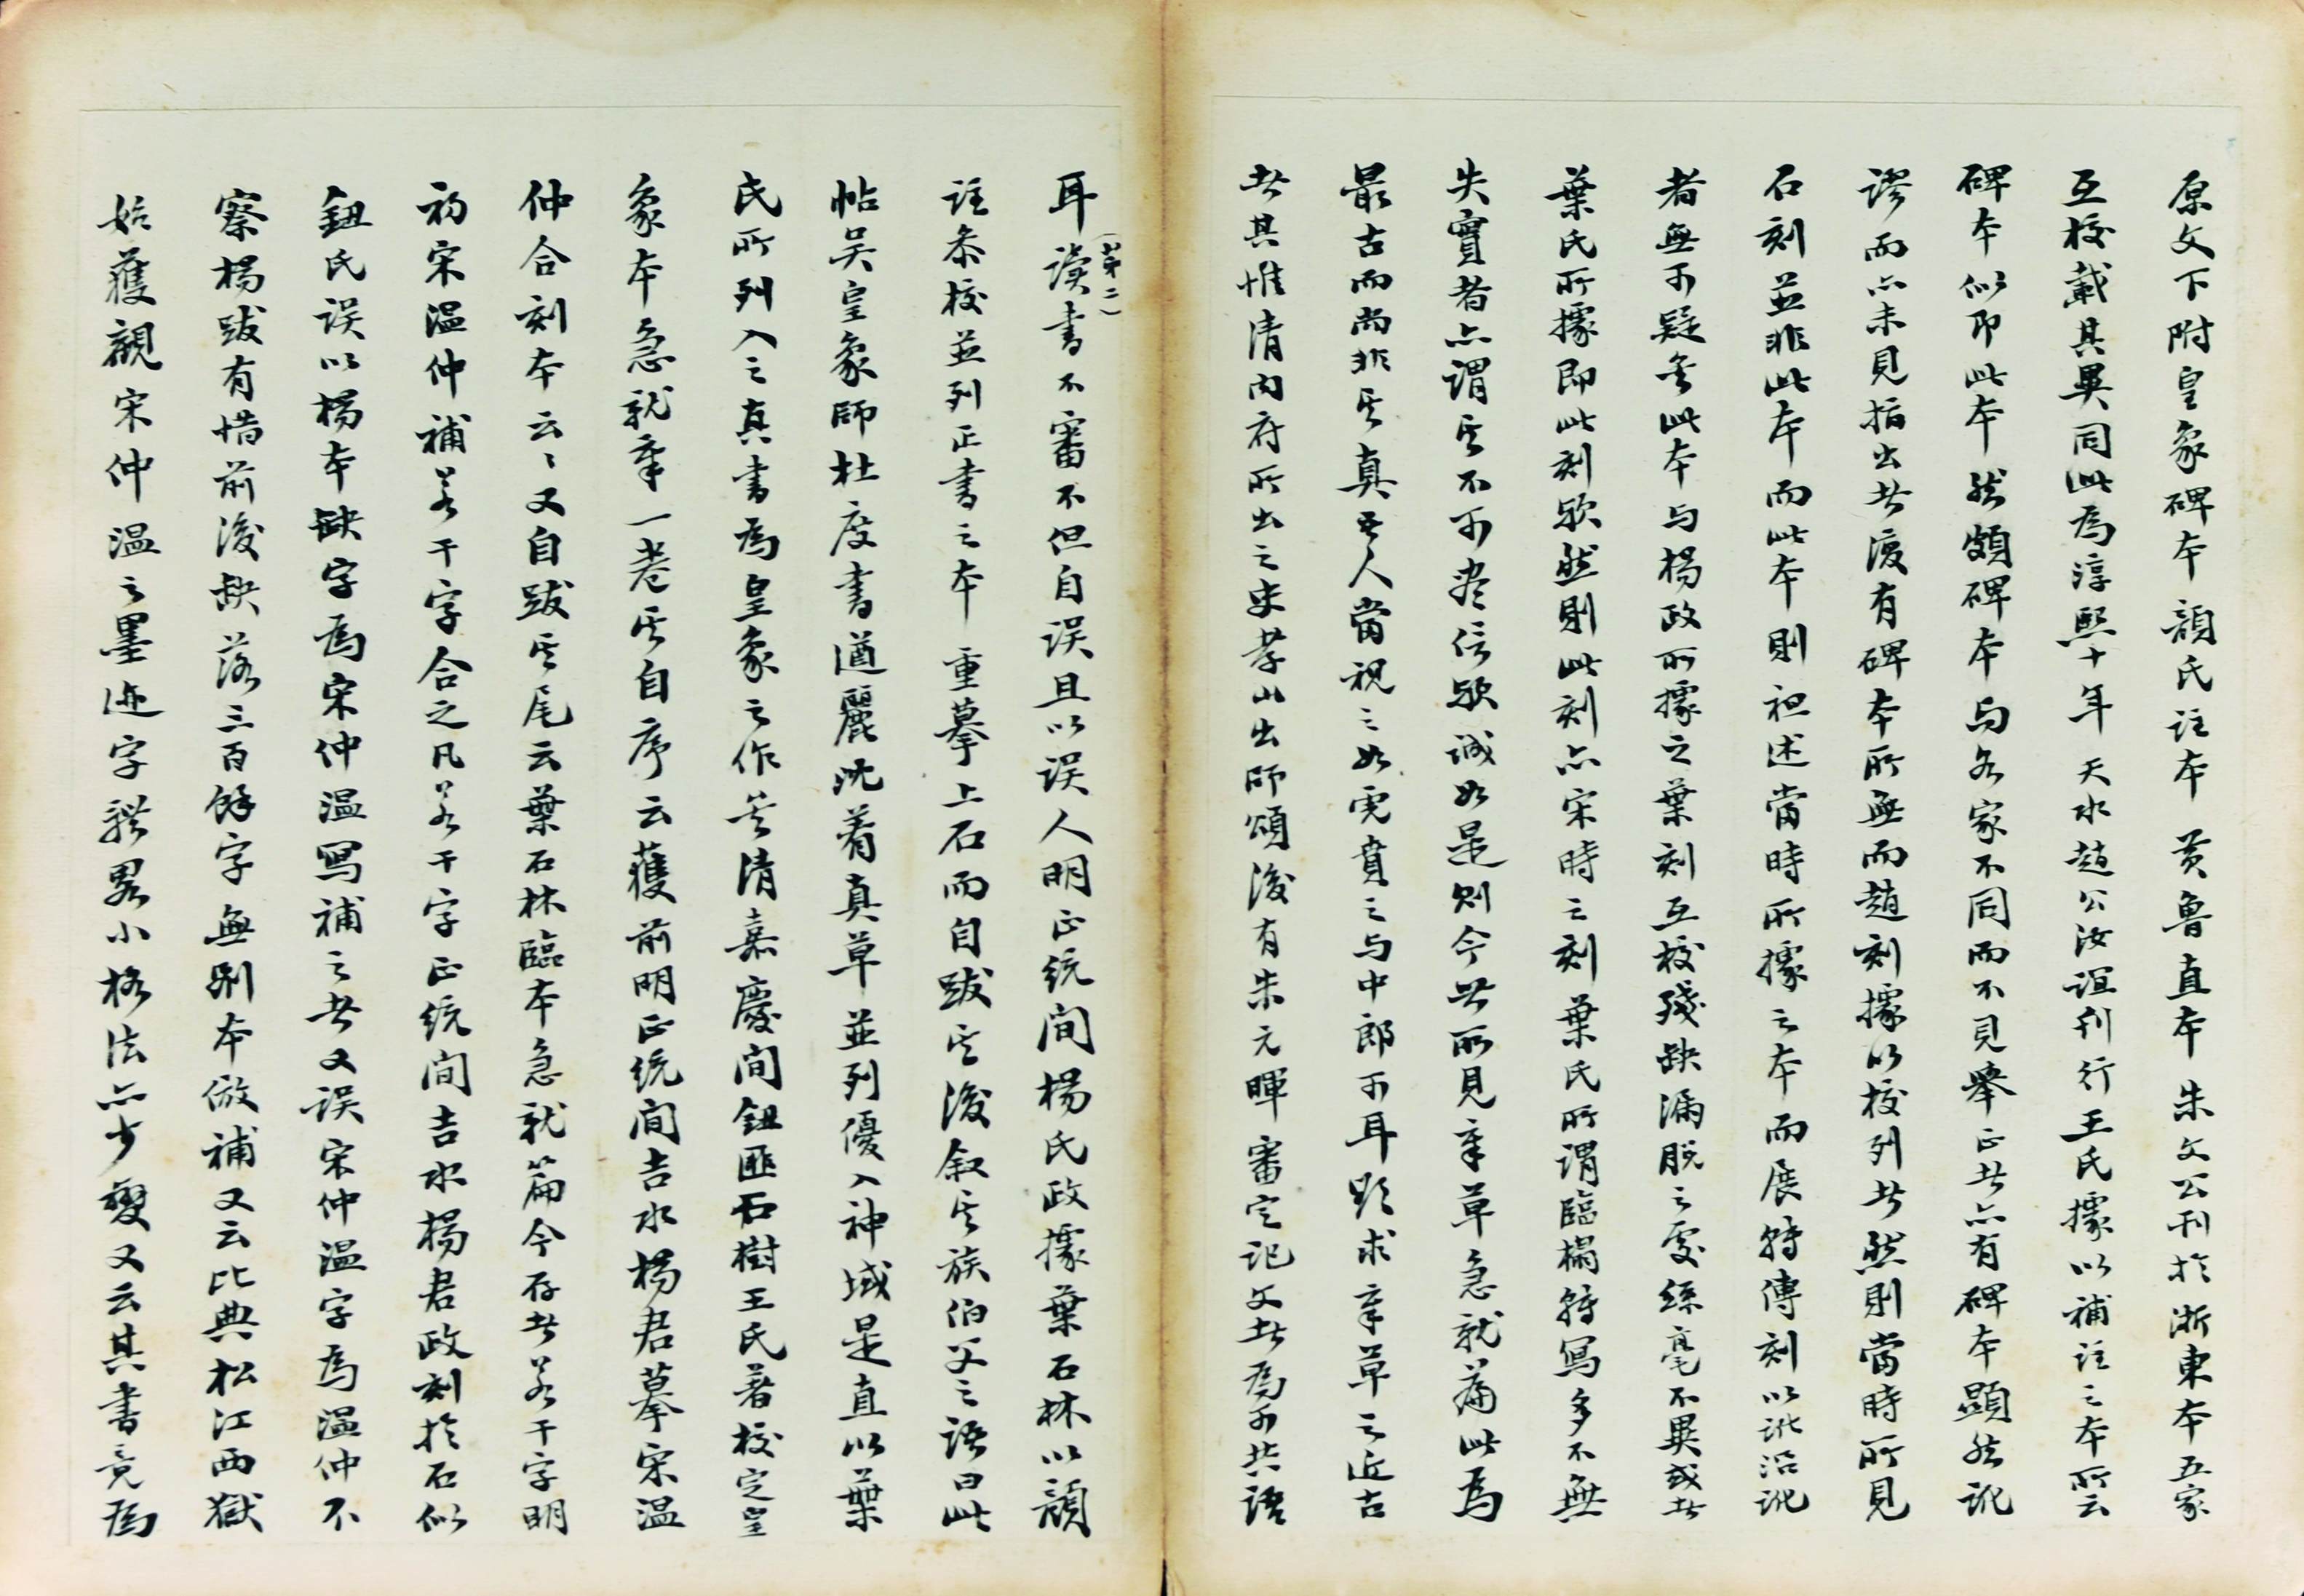 原文下附皇象碑本顏氏註本黃魯直本朱文公刊於浙東本五家
互校載其異同此為淳熙十年天水趙公汝誼刊行王氏據以補註之本所云
碑本似即此本然頗碑本与各家不同而不見舉正者亦有碑本顯然訛
謬而亦未見指出者復有碑本所無而趙刻據以校列者然則當時所見
石刻並非此本而此本則祖述當時所據之本而展轉傳刻以訛沿訛
者無可疑矣此本与楊政所據之葉刻互校殘缺漏脫之處絲毫不異或者
葉氏所據即此刻歟然則此刻亦宋時之刻葉氏所謂臨搨轉寫多不無
失實者亦謂其不可盡信歟誠如是則今世所見章草急就篇此為
最古而尚非其真吾人當視之如虎賁之与中郎可耳顧求章草之近古
者其惟清內府所出之史孝山出師頌後有朱元暉審定記文者為可共語
耳讀書不審不但自誤且以誤人明正統間楊氏政據葉石林以顏
(第二)
註參校並列正書之本重摹上石而自跋其後叙其族伯父之語曰此
帖吳皇象師杜度書遒麗沈着真草並列優入神域是直以葉
氏所列入之真書為皇象之作矣清嘉慶間鈕匪石樹玉氏著校定皇
象本急就章一卷其自序云獲前明正統間吉水楊君摹宋溫
仲合刻本云〻又自跋其尾云葉石林臨本急就篇今存者若干字明
初宋溫仲補若干字合之凡若干字正統間吉水楊君政刻於石似
鈕氏誤以楊本缺字為宋仲溫寫補之者又誤宋仲溫字為溫仲不
察楊跋有惜前後缺落三百餘字無別本倣補又云比典松江西獄
始獲觀宋仲溫之墨迹字樣畧小格法亦少變又云其書竟為